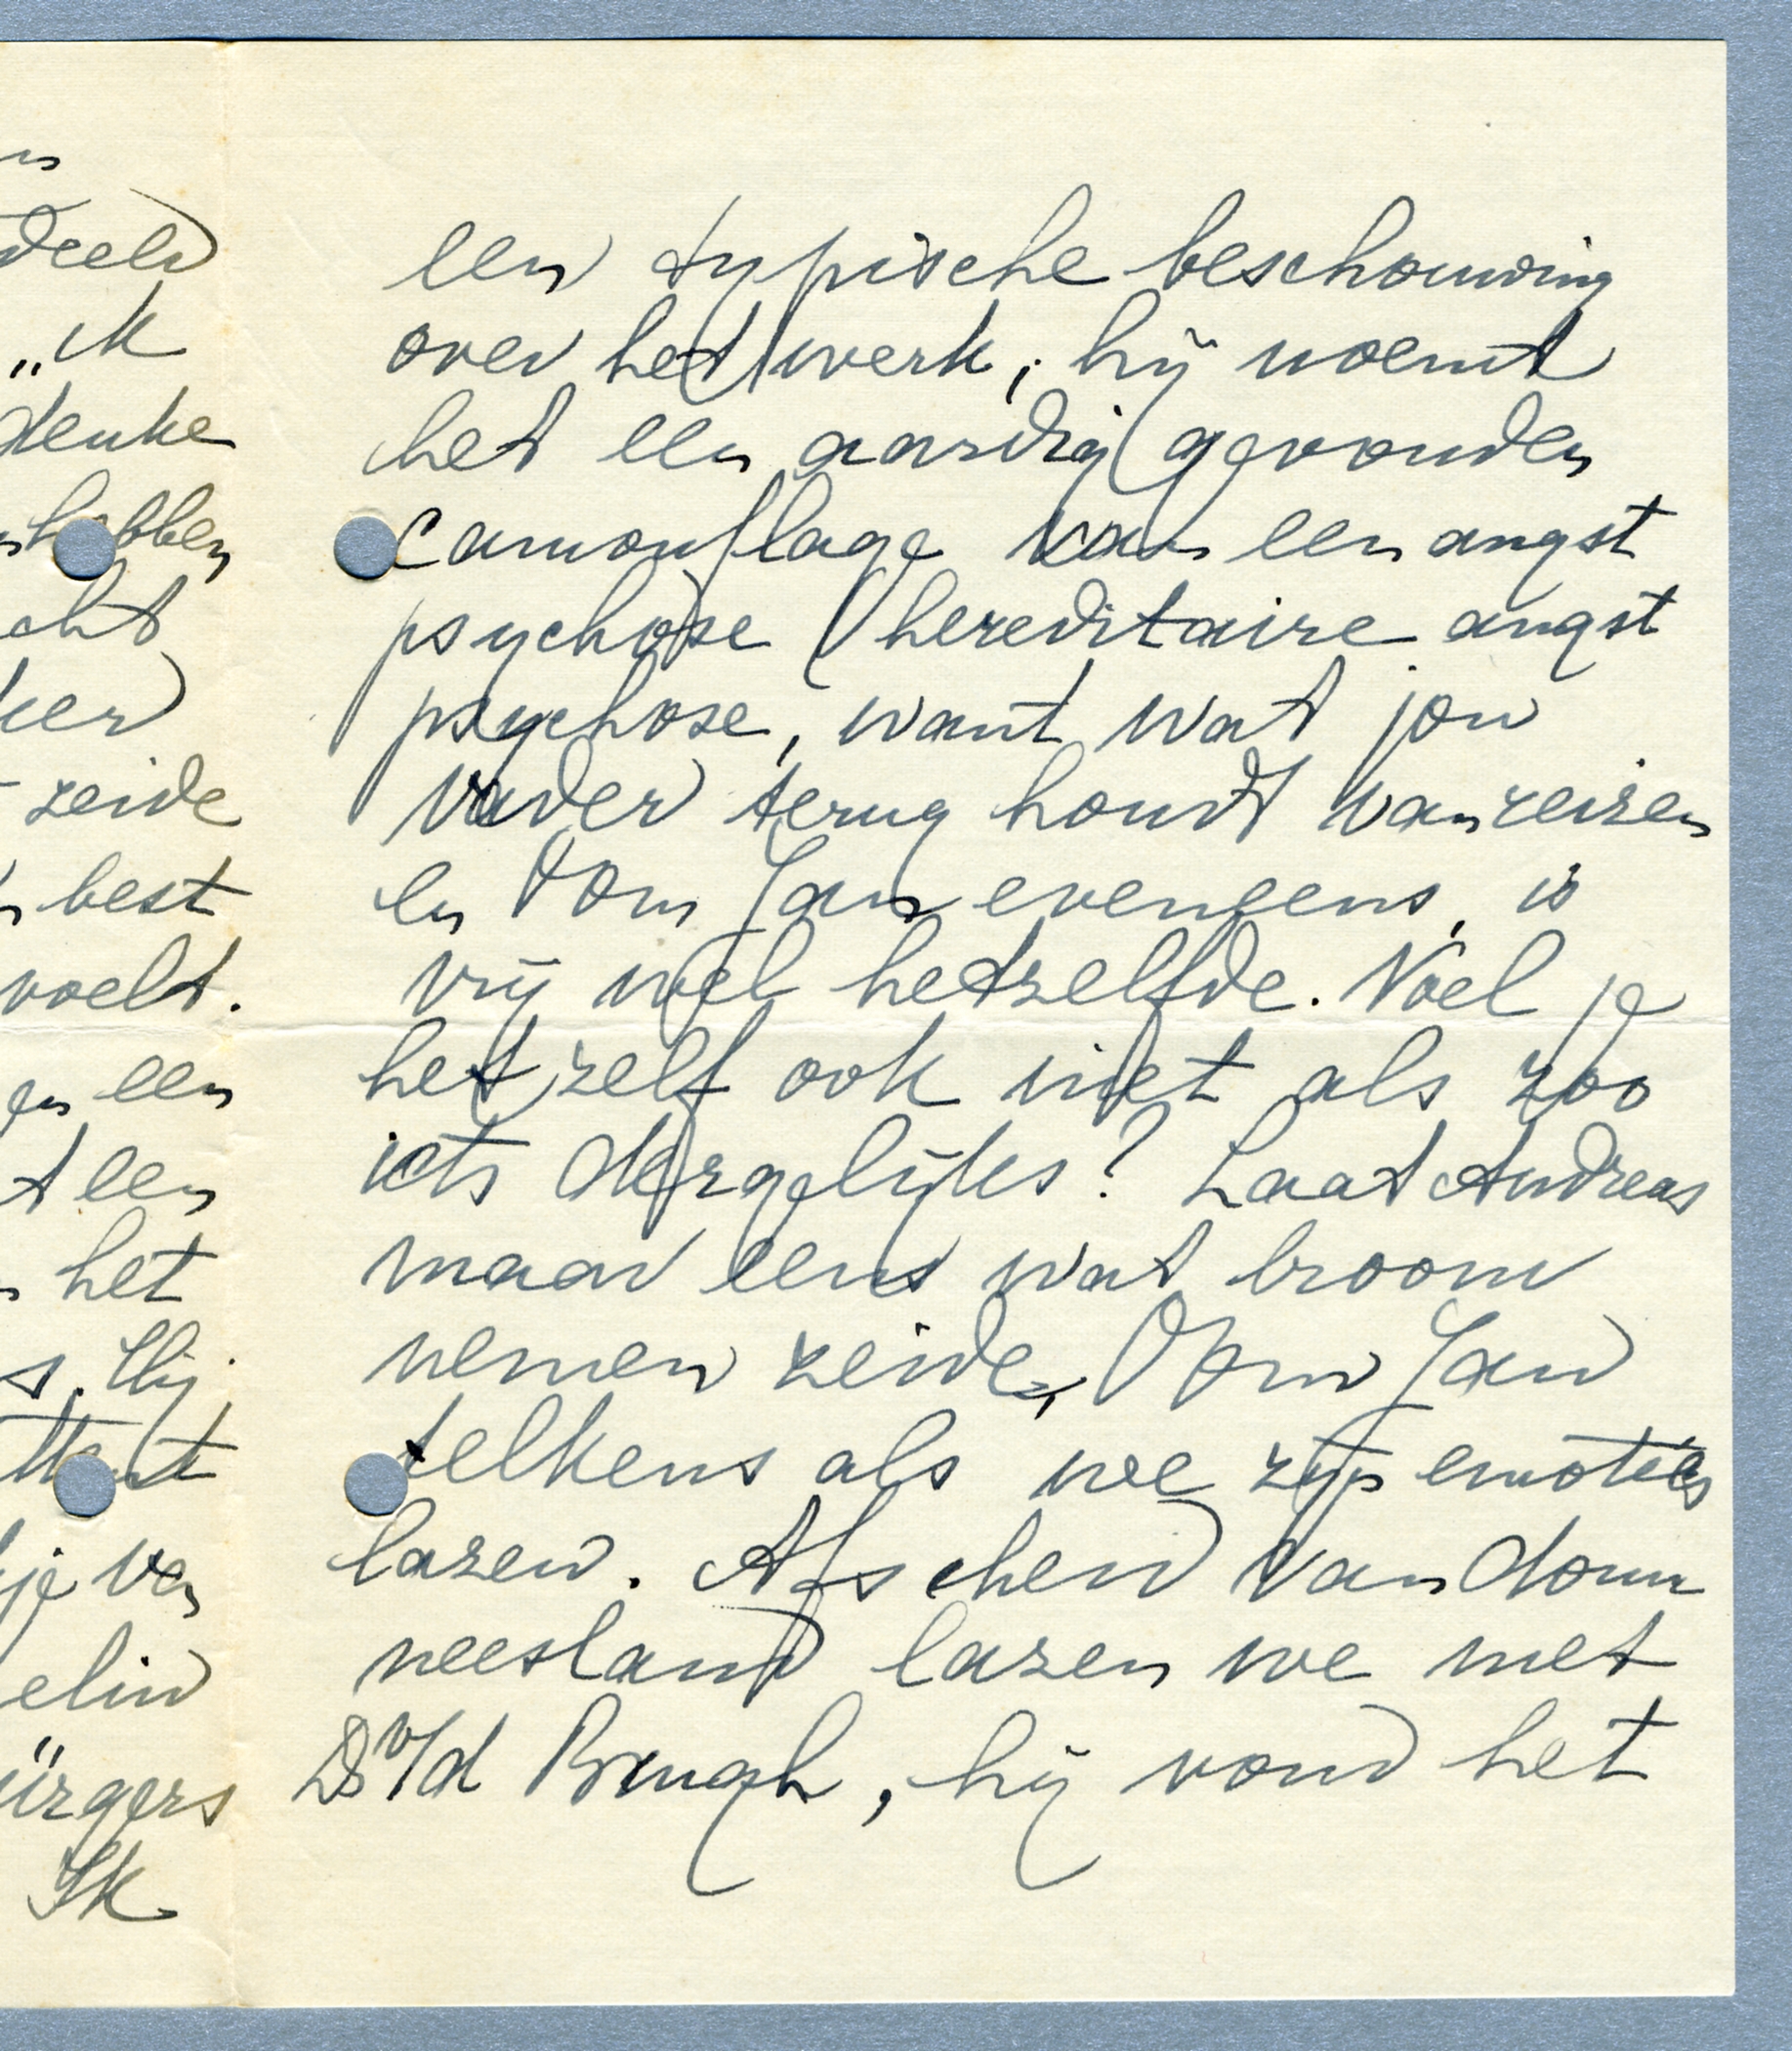 deeld
„ik
denke
hebben
cht
ker
zeide
best
voelt.
en een
t een
het
s. Hij
je van
elin
ürgers
Ik
een typische beschouwing
over het werk; hij noemt
het een aardig gevonden
camouflage van een angst
psychose (hereditaire angst
psychose, want wat jou
vader terug houdt van reizen
en Oom Jan eveneens, is
vrij wel hetzelfde. Voel je
het zelf ook niet als zoo
iets dergelijks? Laat Andreas
maar eens wat broom
nemen zeide, Oom Jan
telkens als we zijn emoties
lazen. Afscheid van domi
neesland lazen we met
Ds v/d Brugh, hij vond het